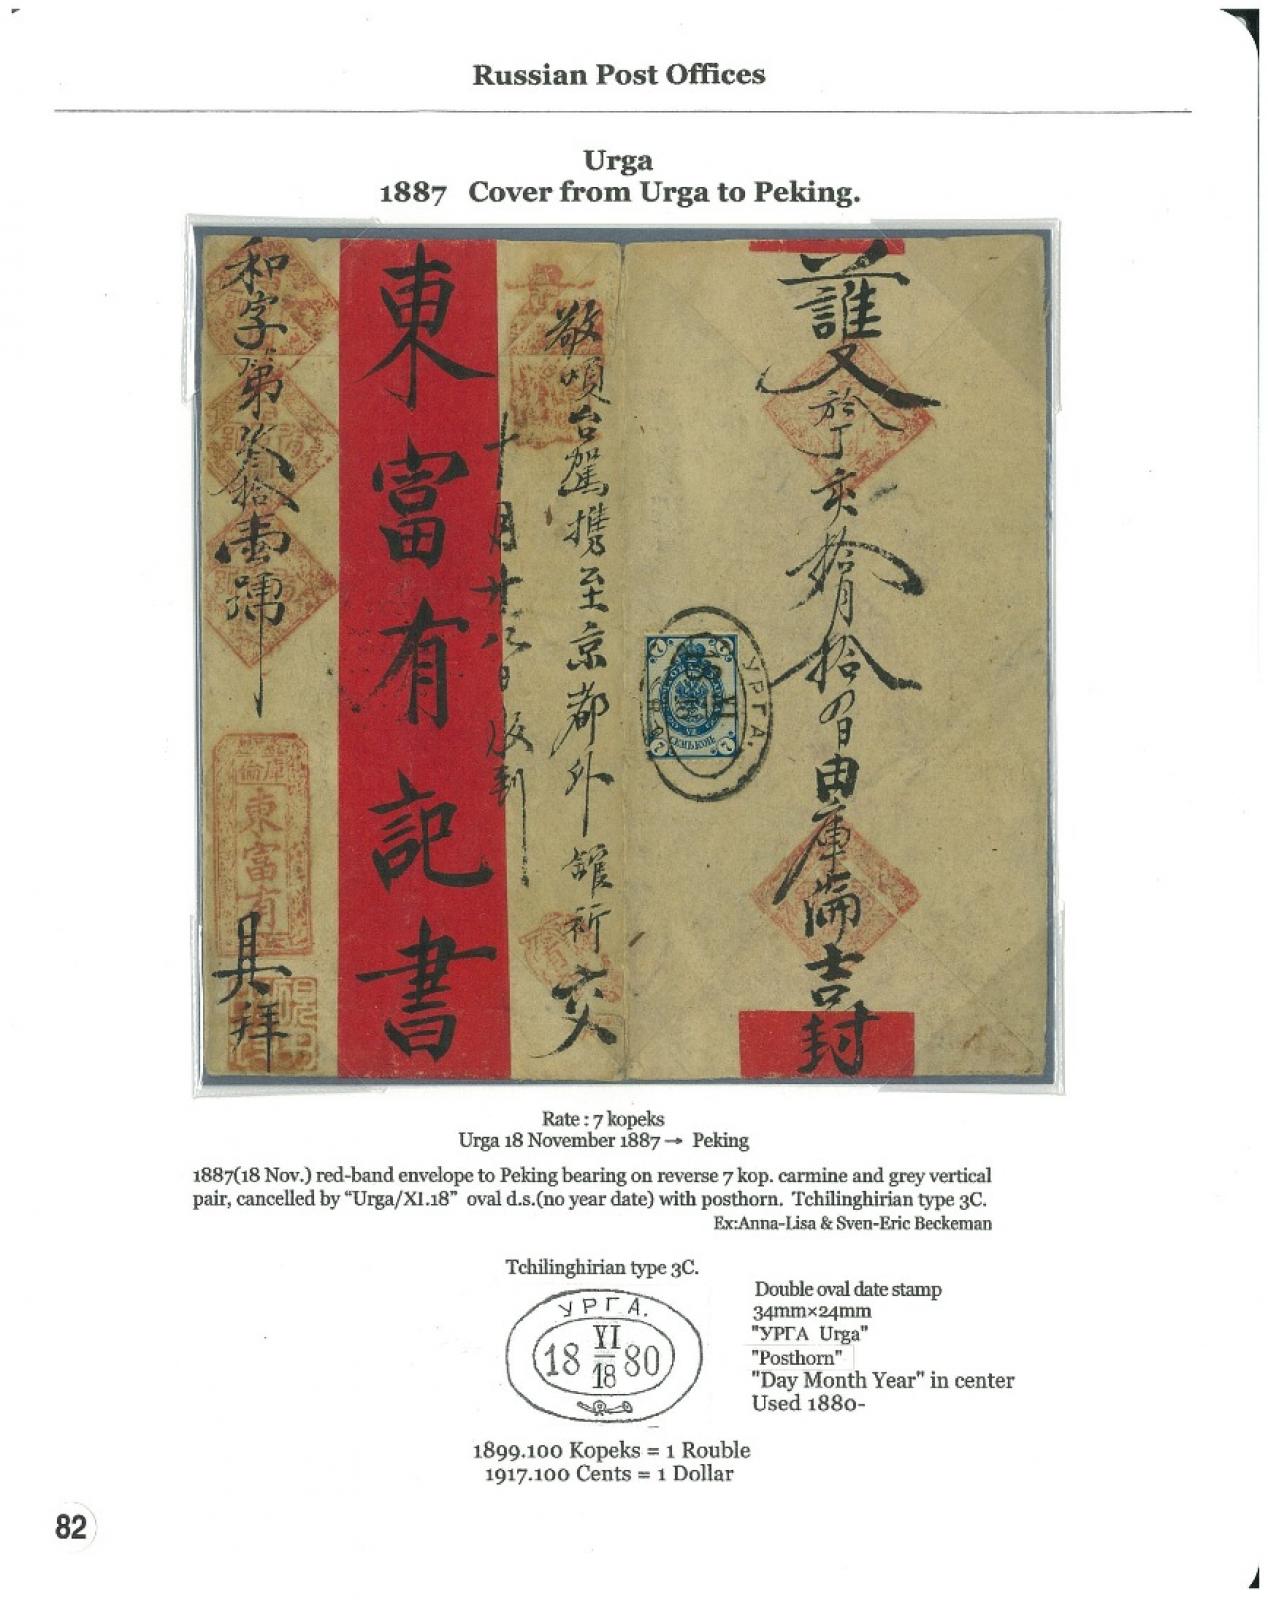 Russian Post Offices
Urga
1887 Cover from Urga to Peking.
和字第叁拾壹號
具拜
東富有記書
十月廿八日收到
敬煩台駕攜至京都外館祈交
護
又於丁亥拾月拾四日由庫倫吉封
庫倫
東富有
УРГА.
7
7
7
7
СЕМЬ КОП.
Rate : 7 kopeks
Urga 18 November 1887 → Peking
1887(18 Nov.) red-band envelope to Peking bearing on reverse 7 kop. carmine and grey vertical
pair, cancelled by “Urga/XI.18” oval d.s.(no year date) with posthorn. Tchilinghirian type 3C.
Ex:Anna-Lisa & Sven-Eric Beckeman
Tchilinghirian type 3C.
УРГА.
VI
18 80
18
Double oval date stamp
34mm×24mm
"УРГА Urga"
"Posthorn"
"Day Month Year" in center
Used 1880-
1899.100 Kopeks = 1 Rouble
1917.100 Cents = 1 Dollar
82